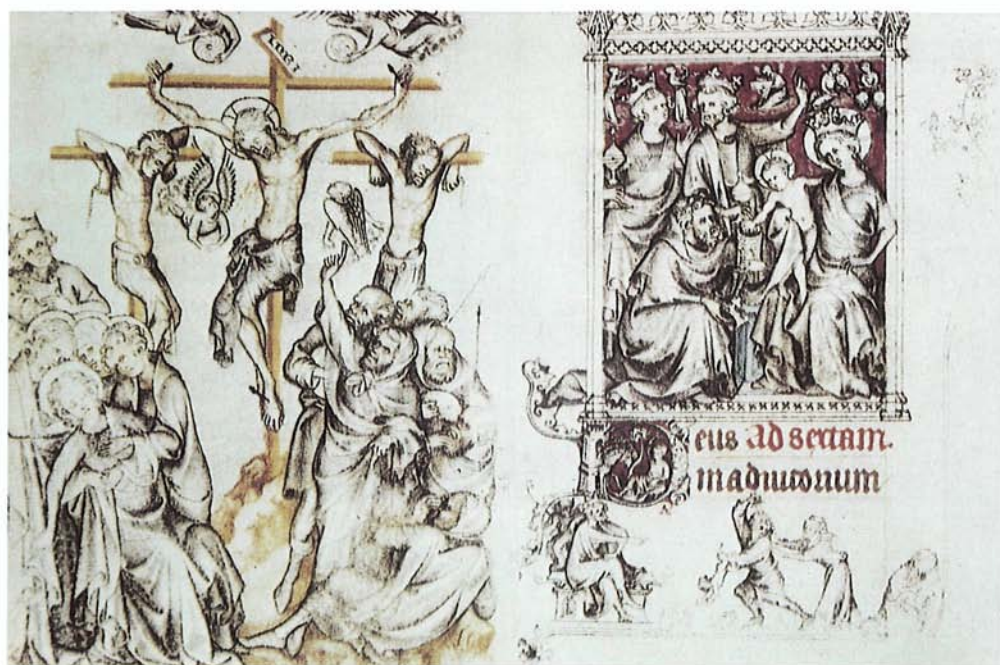 inri
Deus Ad sextam.
in adiutorium